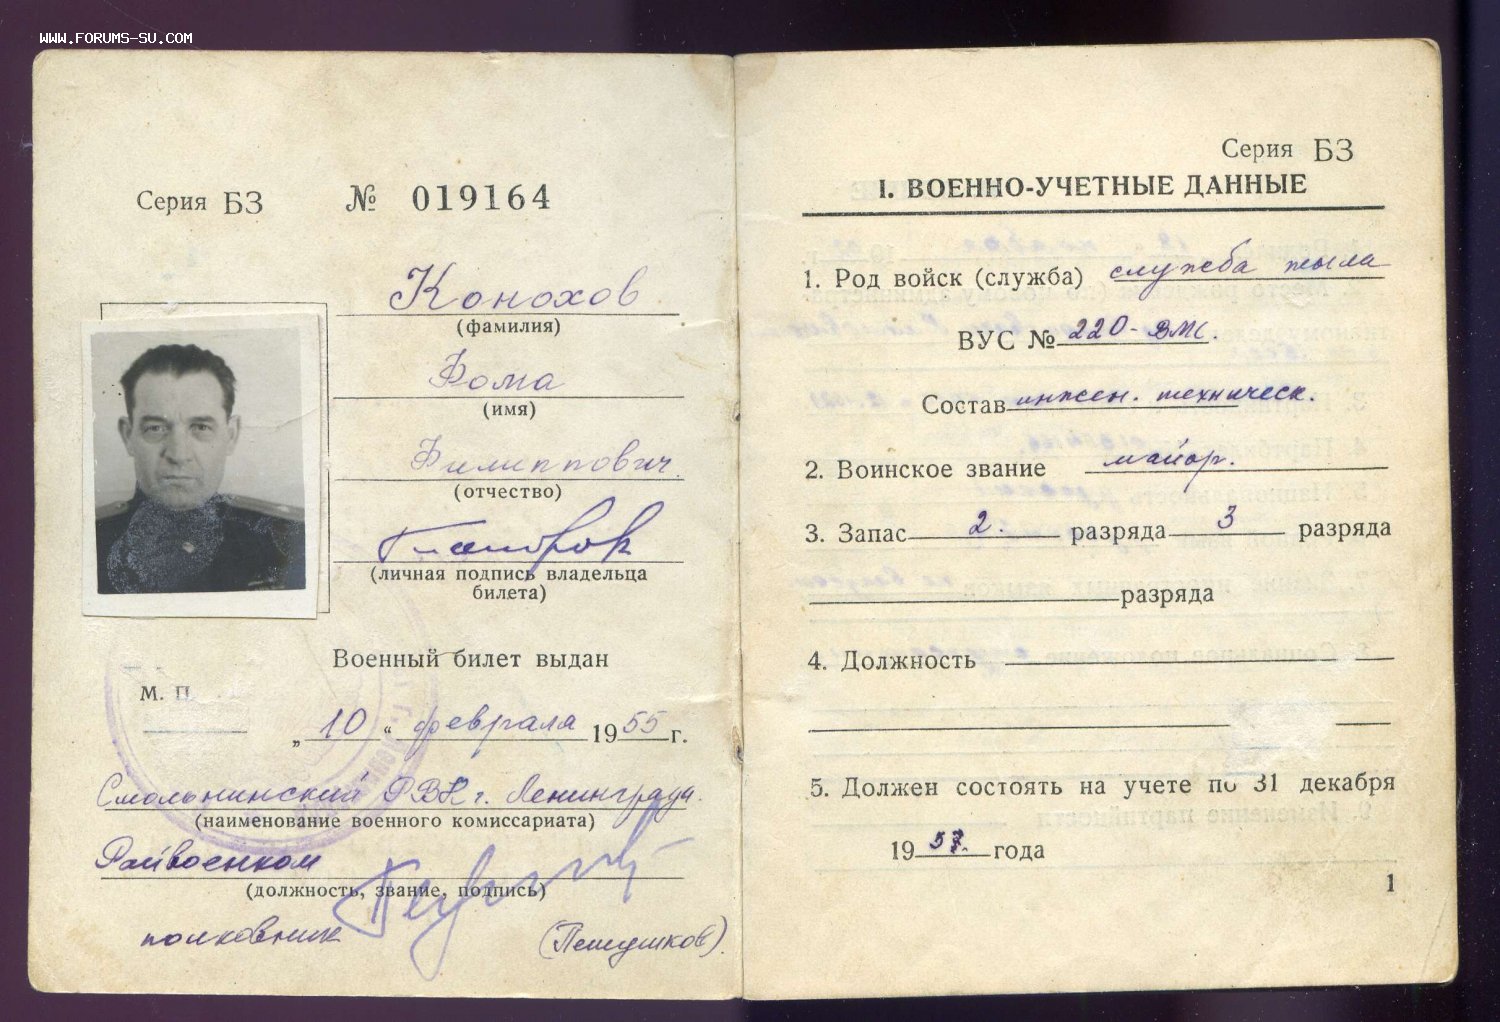 WWW.FORUMS-SU.COM
Серия БЗ № 019164
Конохов
(фамилия)
Фома
(имя)
Филиппович.
(отчество)
(личная подпись владельца
билета)
Военный билет выдан
М. П.
„ 10 “ февраля 1955 г.
Смольнинский РВК г. Ленинграда.
(наименование военного комиссариата)
Райвоенком
(должность, звание, подпись)
полковник (Петушков).
Серия БЗ
I. ВОЕННО-УЧЕТНЫЕ ДАННЫЕ
1. Род войск (служба) служба тыла
ВУС № 220-ВМС.
Состав инжен. техническ.
2. Воинское звание майор.
3. Запас 2. разряда 3 разряда
разряда
4. Должность
5. Должен состоять на учете по 31 декабря
1957. года
1